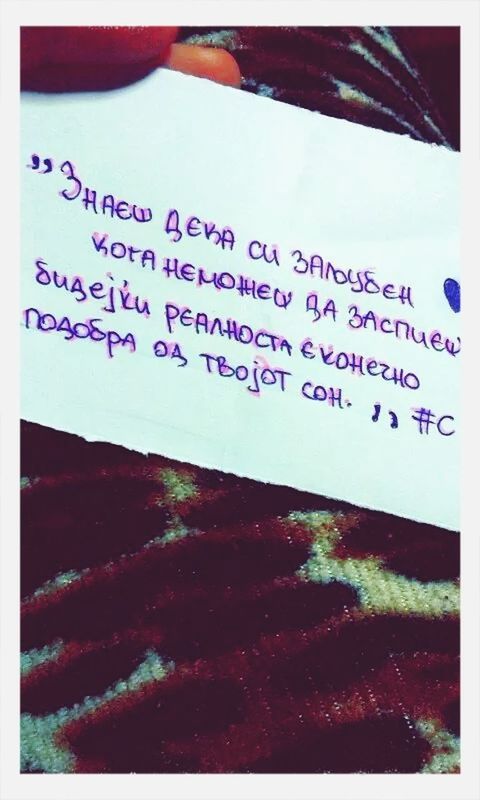 „Знаеш дека си заљубен
кога неможеш да заспиеш
бидејќи реалноста е конечно
подобра од твојот сон. ,, #С